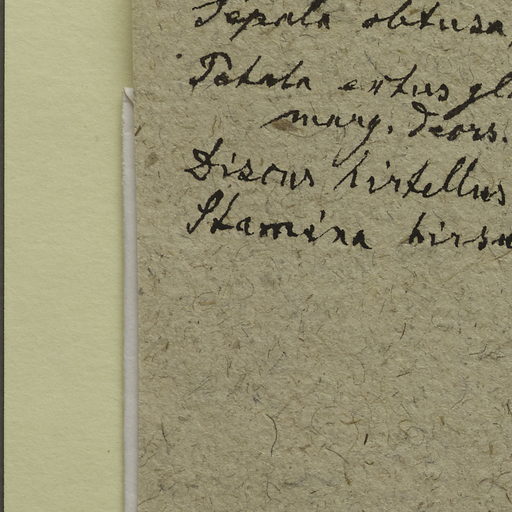 Sepala obtusa,
Petala extus gl
marg. deors.
Discus hirtellus
Stamina hirsu